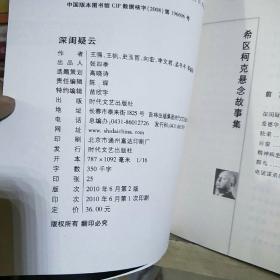 中国版本图书馆 CIP 数据核字(2008)第196996号
深闺疑云
作者 王强、王帆、史玉哲、刘宏、李文君、
出品人 张四季
选题策划 高晓诗
责任编辑 陈琛
特约编辑 苗欣宇
出版 时代文艺出版社
地址 长春市泰来街1825号
电话 总编办:0431-86012726
网址 www.
印刷 北京市通州富达印刷厂
发行 时代文艺出版社
开本 787×1092毫米 1/16
字数 350千字
印张 25
版次 2010年6月第2版
印次 2010年6月第1次印刷
定价 36.00元
版权所有 翻印必究
希区柯克悬念故事集